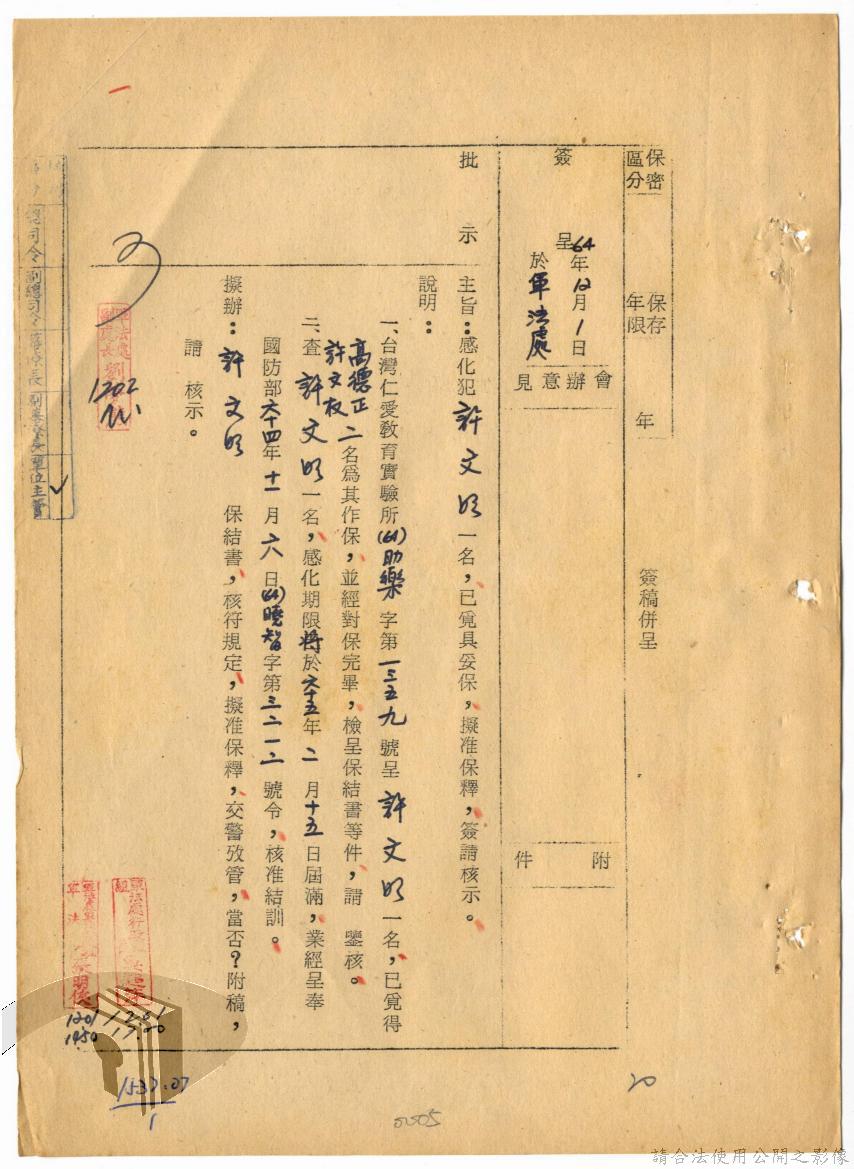 保密區分
保存年限
年
簽稿併呈
會辦意見
附件
簽
64年12月1日
呈於軍法處
批示
主旨：感化犯許文明一名，已覓具妥保，擬准保釋，簽請核示。
說明：
一、台灣仁愛教育實驗所(64)助樂字第一三五九號呈許文明一名，已覓得
高德正
許文枝
二名為其作保，並經對保完畢，檢呈保結書等件，請鑒核。
二、查許文明一名，感化期限將於六十五年二月十五日屆滿，業經呈奉
國防部六十四年十一月六日(64)曉智字第三二一二號令，核准結訓。
擬辦：許文明保結書，核符規定，擬准保釋，交警攷管，當否？附稿，
請核示。
總司令
副總司令
單位主管
1202
1201
1450
1201
1700
1
0005
20
請合法使用公開之影像